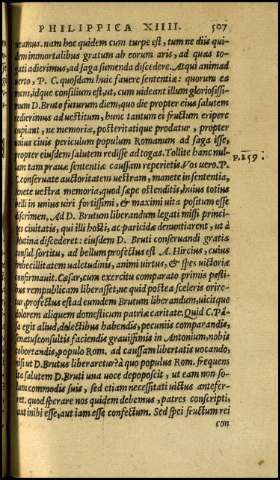 PHILIPPICA XIIII. 507
neamus. nam hoc quidem cum turpe est, tum ne diis qui-
dem immortalibus gratum ab eorum aris, ad quas to-
gati adierimus, ad saga sumenda discedere. Atqui animad
uerto, P. C. quosdam huic fauere sententiæ: quorum ea
mens, idque consilium est, ut, cum uideant illum gloriosissi-
mum D. Bruto futurum diem, quo die propter eius salutem
redierimus ad uestitum, hunc tantum ei fructum eripere
cupiant, ne memoriæ, posteritatique prodatur, propter
unius ciuis periculum populum Romanum ad saga isse,
propter eiusdem salutem redisse ad togas. Tollite hanc: nul-
lam tam prauæ sententiæ caussam reperietis. Vos uero, P.
conseruate auctoritatem uestram, manete in sententia,
tenete uestra memoria, quod sæpe ostenditis, huius totius
belli in unius uiri fortissimi, & maximi uita positum esse
discrimen. Ad D. Brutum liberandum legati missi princi-
pes ciuitatis, qui illi hosti, ac paricidæ denuntiarent, ut à
Mutina discederet: eiusdem D. Bruti conseruandi gratia
consul sortitu, ad bellum profectus est A. Hircius, cuius
imbecillitatem ualetudinis, animi uirtus, & spes uictoriæ
confirmauit. Cæsar, cum exercitu comparato primis pesti-
bus rempublicam liberasset, ne quid postea sceleris orire-
tur, profectus est ad eumdem Brutum liberandum, uicitque
dolorem aliquem domesticum patriæ caritate. Quid C. Pā-
sa egit aliud, delectibus habendis, pecuniis comparandis,
senatusconsultis faciendis grauissimis in Antonium, nobis
cohortandis, populo Rom. ad caussam libertatis uocando,
nisi ut D. Brutus liberaretur? à quo populus Rom. frequens
ita salutem D. Bruti una uoce depoposcit, ut eam non so-
lum commodis suis, sed etiam necessitati uictus antefer-
ret. quod sperare nos quidem debemus, patres conscripti,
aut inibi esse, aut iam esse confectum. Sed spei fructum rei
con
p. 259.